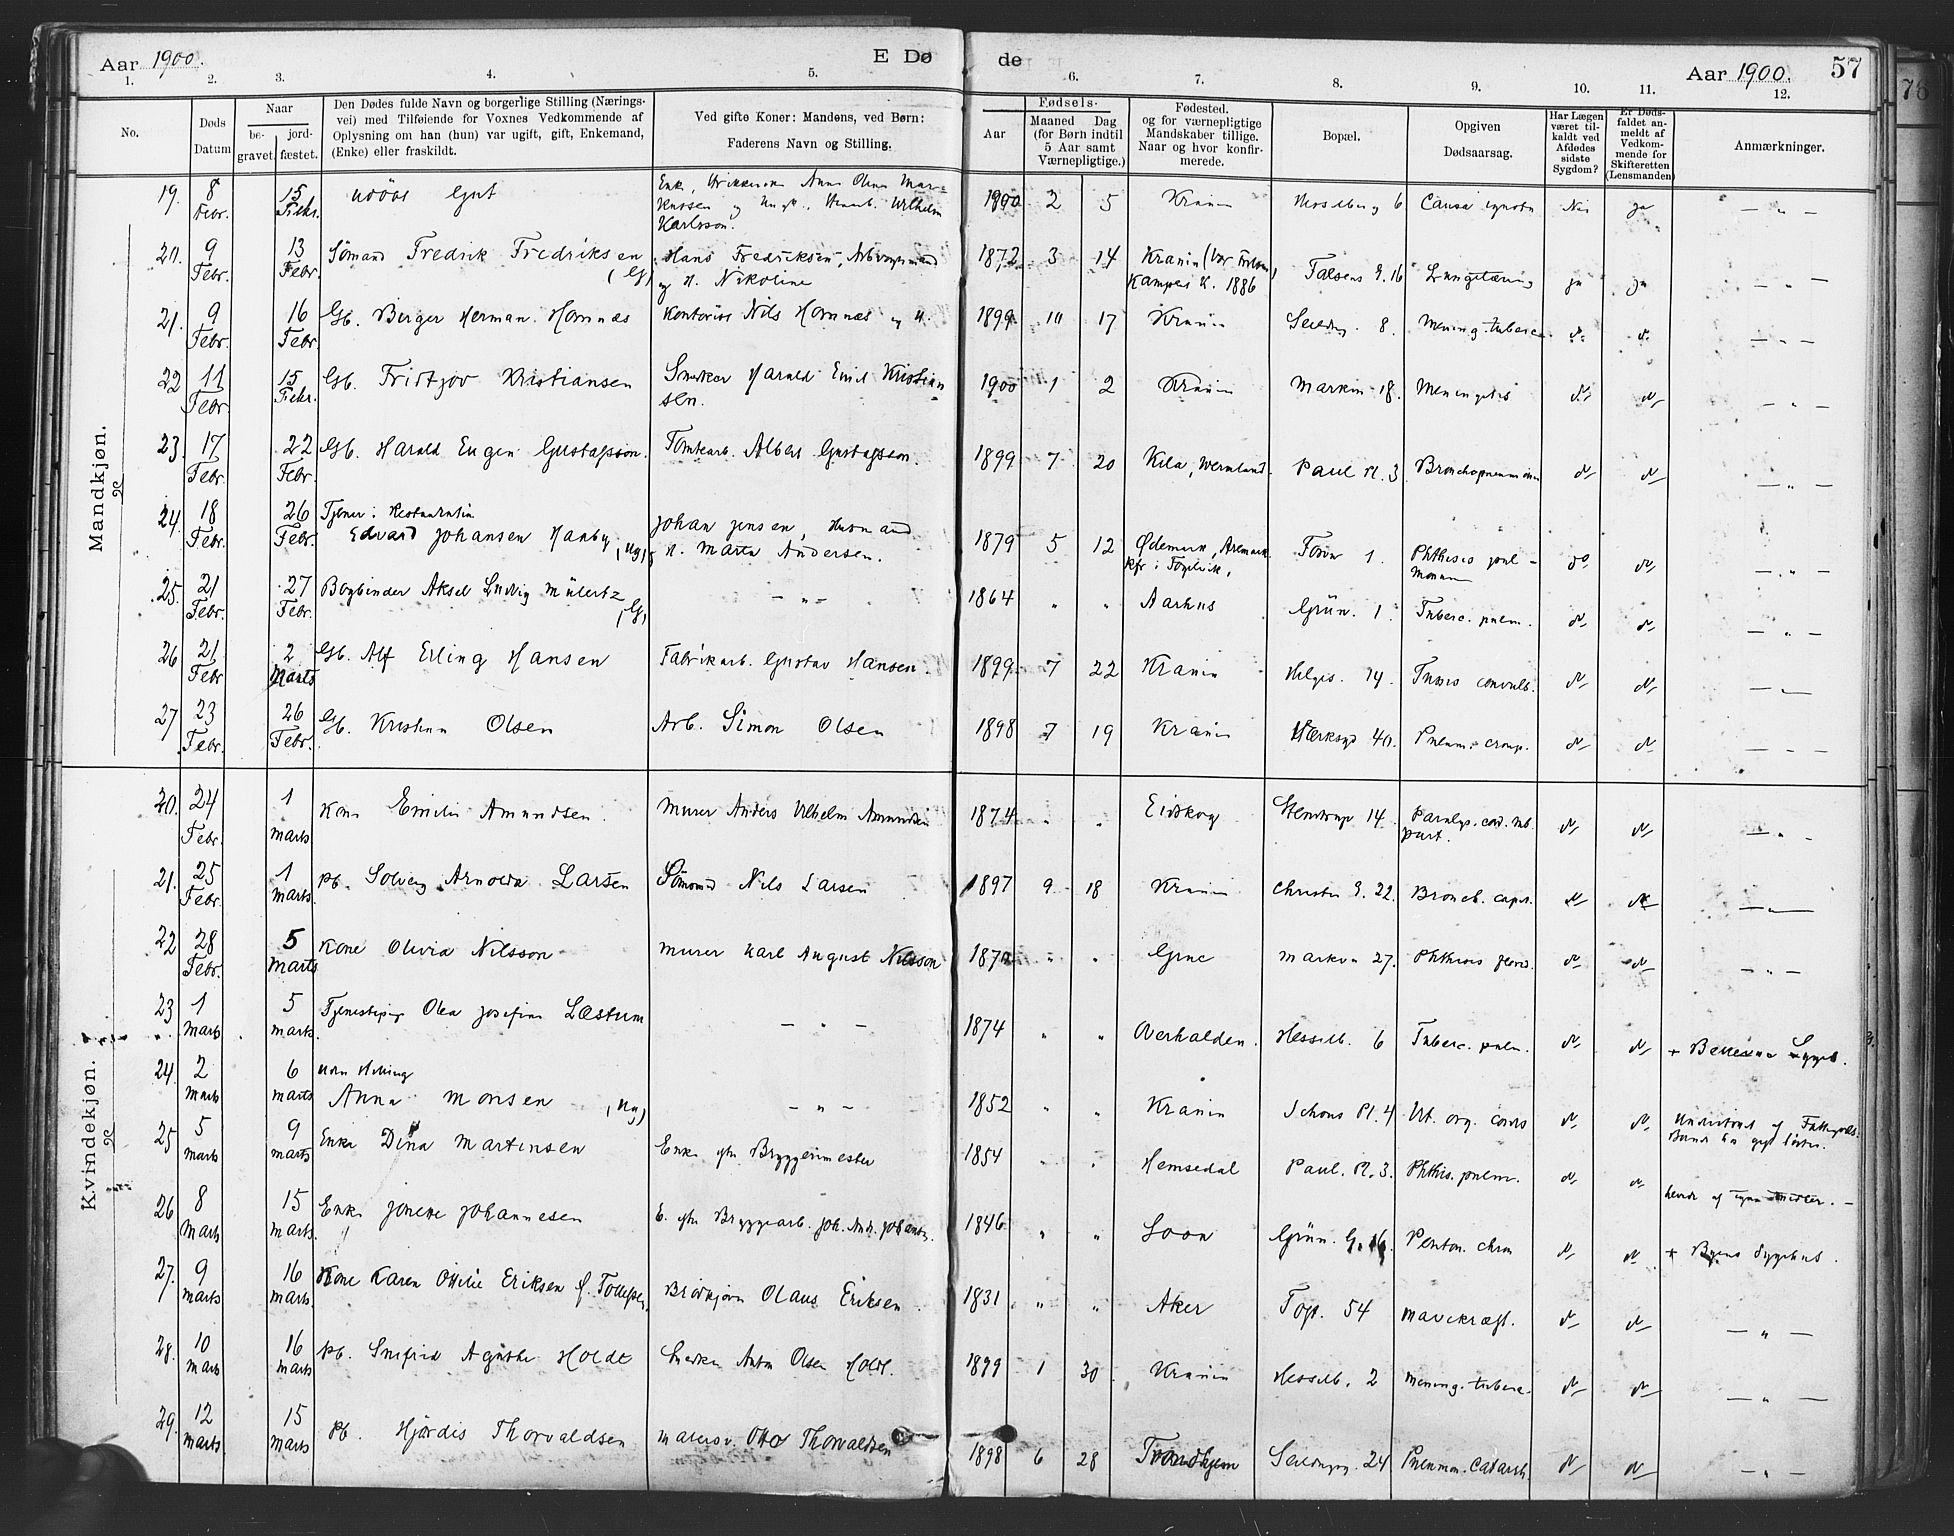 Aar 1900.
E Dø
de
Aar 1900.
57
1. 2. 3. 4. 5. 6. 7. 8. 9. 10. 11. 12.
No.
Døds Datum
Naar
be-gravet. jord-fæstet.
Den Dødes fulde Navn og borgerlige Stilling (Nærings-
vei) med Tilføiende for Voxnes Vedkommende af
Oplysning om han (hun) var ugift, gift, Enkemand,
(Enke) eller fraskildt.
Ved gifte Koner: Mandens, ved Børn:
Faderens Navn og Stilling.
Fødsels-
Aar
Maaned Dag
(for Børn indtil
5 Aar samt
Værnepligtige.)
Fødested.
og for værnepligtige
Mandskaber tillige.
Naar og hvor konfir-
merede.
Bopæl.
Opgiven
Dødsaarsag.
Har Lægen
været til-
kaldt ved
Afdødes
sidste
Sygdom?
Er Døds-
faldet an-
meldt af
Vedkom-
mende for
Skifteretten
(Lensmanden)
Anmærkninger.
Mandkjøn.
19. 8 Febr. 15 Febr. udøbt Gut Wilhelm Karlsson. 1900 2 5 Krania Hesselberg 6 Causa ignota Nei Ja — " —
20. 9 Febr. 13 Febr. Sømand Fredrik Fredriksen (G) Hans Fredriksen, og H. Nikoline 1872 3 14 Krania Kampens K. 1886 Falsens G. 16 Lungetæring ja ja — " —
21. 9 Febr. 16 Febr. Gb. Birger Herman Hornnæs Kontorist Nils Hornnæs og H. 1899 10 17 Krania Seildug. 8. Mening. tuberc. d. d. — " —
22 11 Febr. 15 Febr. Gb. Fridtjov Kristiansen Snedker Harald Emil Kristiansen. 1900 1 2 Krania Markvn 18. Meningitis do do — " —
23. 17 Febr. 22 Febr. Gb. Harald Eugen Gustafsson. Tomtearb. Albert Gustafsson. 1899 7 20 Kila, Wermland. Paul Pl. 3 Bronchopneumoni do do — " —
24. 18 Febr. 26 Febr. Tjener i Restauration Edvard Johansen Haaby (Ug) Johan Jensen, Husmand & H. Marta Andersen. 1879 5 12 Ødemark, Aremark kfr i Fogelvik, 1. Phthisis pulmonum do do — " —
25. 21 Febr. 27 Febr. Bogbinder Aksel Ludvig Mülertz (G) — " — 1864 " " Aarhus Grün. 1 Tuberc. pulm. do do — " —
26 21 Febr 2 Marts Gb. Alf Erling Hansen Fabrikarb. Gustav Hansen. 1899 7 22 Krania Helgs. 14. Tussis convuls. do do — " —
27 23 Febr. 26 Febr. Gb. Kristian Olsen Arb. Simon Olsen 1898 7 19 Krania Værksgd 40. Pneum. croup. do do — " —
Kvindekjøn.
20. 24 Febr. 1 marts Kone Emilie Amundsen. Murer Anders Vilhelm Amundsen 1874 " " Eidskog Stenstrup 14 Paralys. cord. sub. part. do do — " —
21. 25 Febr. 1 marts Pb. Solveig Arnolda Larsen Sømand Nils Larsen 1897 9 18 Krania Christies G. 22. Bronch. capil. do do — " —
22 28 Febr. 5 marts Kone Olivia Nilsson Murer Karl August Nilsson " " Grue Markvn 27. Phthisis florid. do do — " —
23 1 Marts 5 marts. Tjenestepige Olea Josefine Læstum — " — 1874 " " Overhalden. Hesselb. 6 Tuberc. pulm. do do + Sygeh.
24. 2 Marts 6 marts uden Stilling Anna Monsen (Ug) — " — 1852 " " Krania Schous Pl. 4 Vit. org. cordis do do Understøttet af Fattigvæs.
25 5 marts 9 marts Enke Dina Martinsen Enke efter Bryggerimester 1854 " " Hemsedal Paul. Pl. 3. Phthis. pulm. do do levede af egne Midler. —
26 8 Marts 15 marts. Enke Johanesen E. efter Bryggearb. Joh. And. Johanes. 1846 " " Soon Grün. G. 16. Periton. chron do do + Byens Sygehus.
27. 9 marts 16 marts. Kone Karen Ottilie Eriksen f. Tollefsen, Brødkjører Olaus Eriksen. 1831 " " Aker Toft. 54 Mavekræft. do do — " —
28. 10 Marts 16 marts Pb. Snefrid Agathe Holdt Snedker Anton Olsen Holdt. 1899 1 30 Krania Hesselb. 2 mening. tuberc. do do — " —
29. 12 marts. 15 marts Pb. Hjørdis Thorvaldsen Malersv. Otto Thorvaldsen 1898 6 28 Trondhjem Seildugsg. 24 Pneumon. Catarrh. do do — " —